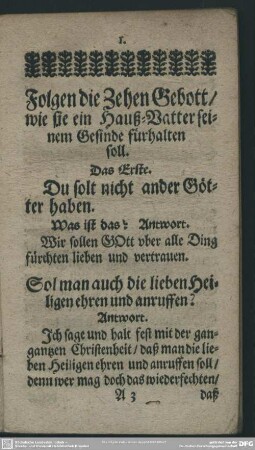 1.
Folgen die Zehen Gebott/
wie sie ein Hauß-Vatter sei-
nem Gesinde fürhalten
soll.
Das Erste.
Du solt nicht ander Göt-
ter haben.
Was ist das? Antwort.
Wir sollen GOtt vber alle Ding
fürchten lieben und vertrauen.
Sol man auch die lieben Hei-
ligen ehren und anruffen?
Antwort.
Ich sage und halt fest mit der gan-
gantzen Christenheit/ daß man die lie-
ben Heiligen ehren und anruffen soll/
denn wer mag doch das wiederfechten/
A 3 daß